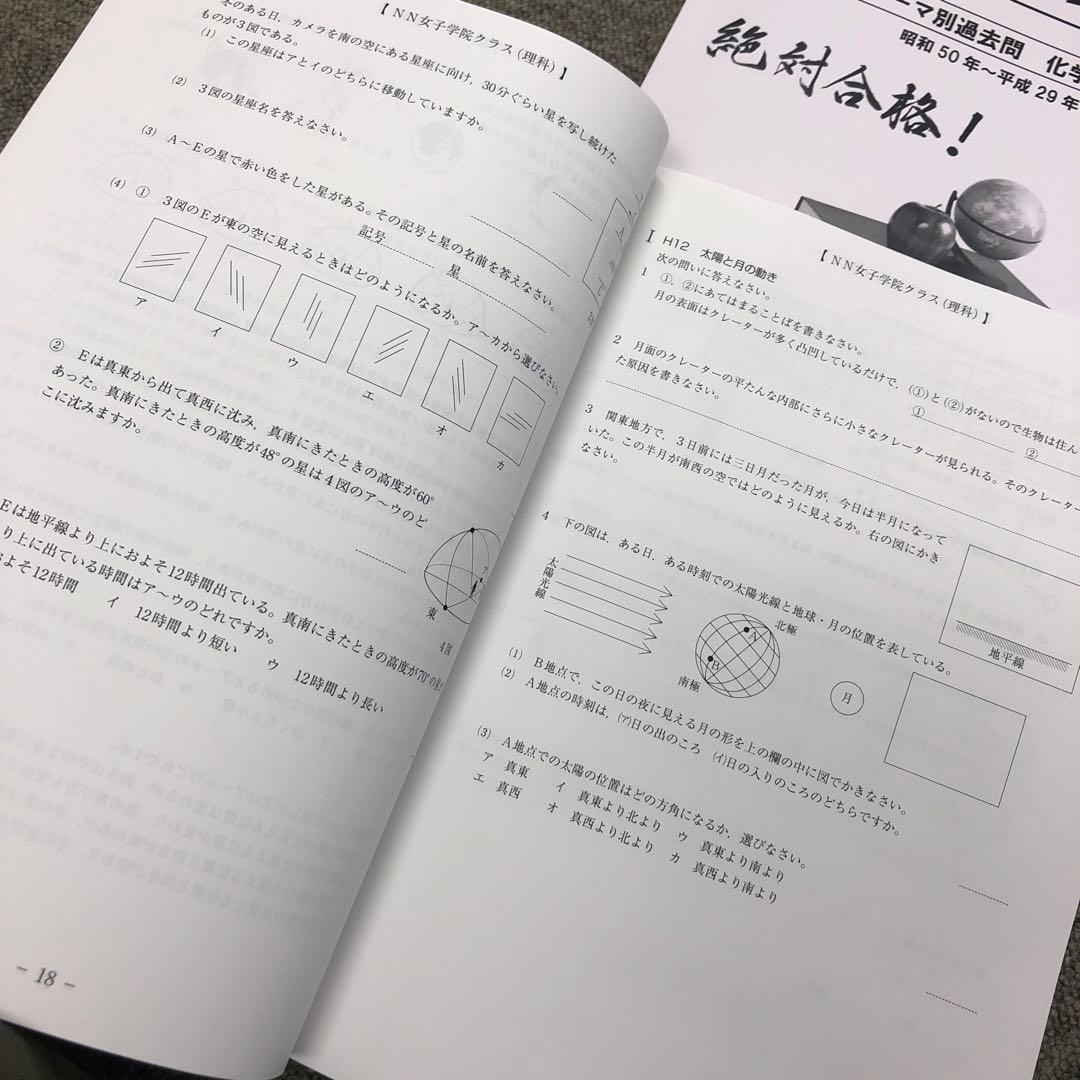 【NN女子学院クラス（理科）】
冬のある日，カメラを南の空にある星座に向け，30分ぐらい星を写し続けた
ものが3図である。
(1) この星座はアとイのどちらに移動していますか。
(2) 3図の星座名を答えなさい。
(3) A～Eの星で赤い色をした星がある。その記号と星の名前を答えなさい。
記号 星
(4) ① 3図のEが東の空に見えるときはどのようになるか。ア～カから選びなさい。
ア イ ウ エ オ カ
② Eは真東から出て真西に沈み，真南にきたときの高度が60°
あった。真南にきたときの高度が48°の星は4図のア～ウのど
こに沈みますか。
東
4図
Eは地平線より上におよそ12時間出ている。真南にきたときの高度が70°の星
り上に出ている時間はア～ウのどれですか。
およそ12時間 イ 12時間より短い ウ 12時間より長い
－ 18 －
ーマ別過去問 化学
昭和50年～平成29年
絶対合格！
【NN女子学院クラス（理科）】
I H12 太陽と月の動き
次の問いに答えなさい。
1 ①，②にあてはまることばを書きなさい。
月の表面はクレーターが多く凸凹しているだけで，（①）と（②）がないので生物は住ん
① ②
2 月面のクレーターの平たんな内部にさらに小さなクレーターが見られる。そのクレーター
た原因を書きなさい。
3 関東地方で，3日前には三日月だった月が，今日は半月になって
いた。この半月が南西の空ではどのように見えるか。右の図にかき
なさい。
地平線
4 下の図は，ある日，ある時刻での太陽光線と地球・月の位置を表している。
太陽光線
北極
A
B
南極
月
(1) B地点で，この日の夜に見える月の形を上の欄の中に図でかきなさい。
(2) A地点の時刻は，(ア)日の出のころ (イ)日の入りのころのどちらですか。
(3) A地点での太陽の位置はどの方角になるか，選びなさい。
ア 真東 イ 真東より北より ウ 真東より南より
エ 真西 オ 真西より北より カ 真西より南より